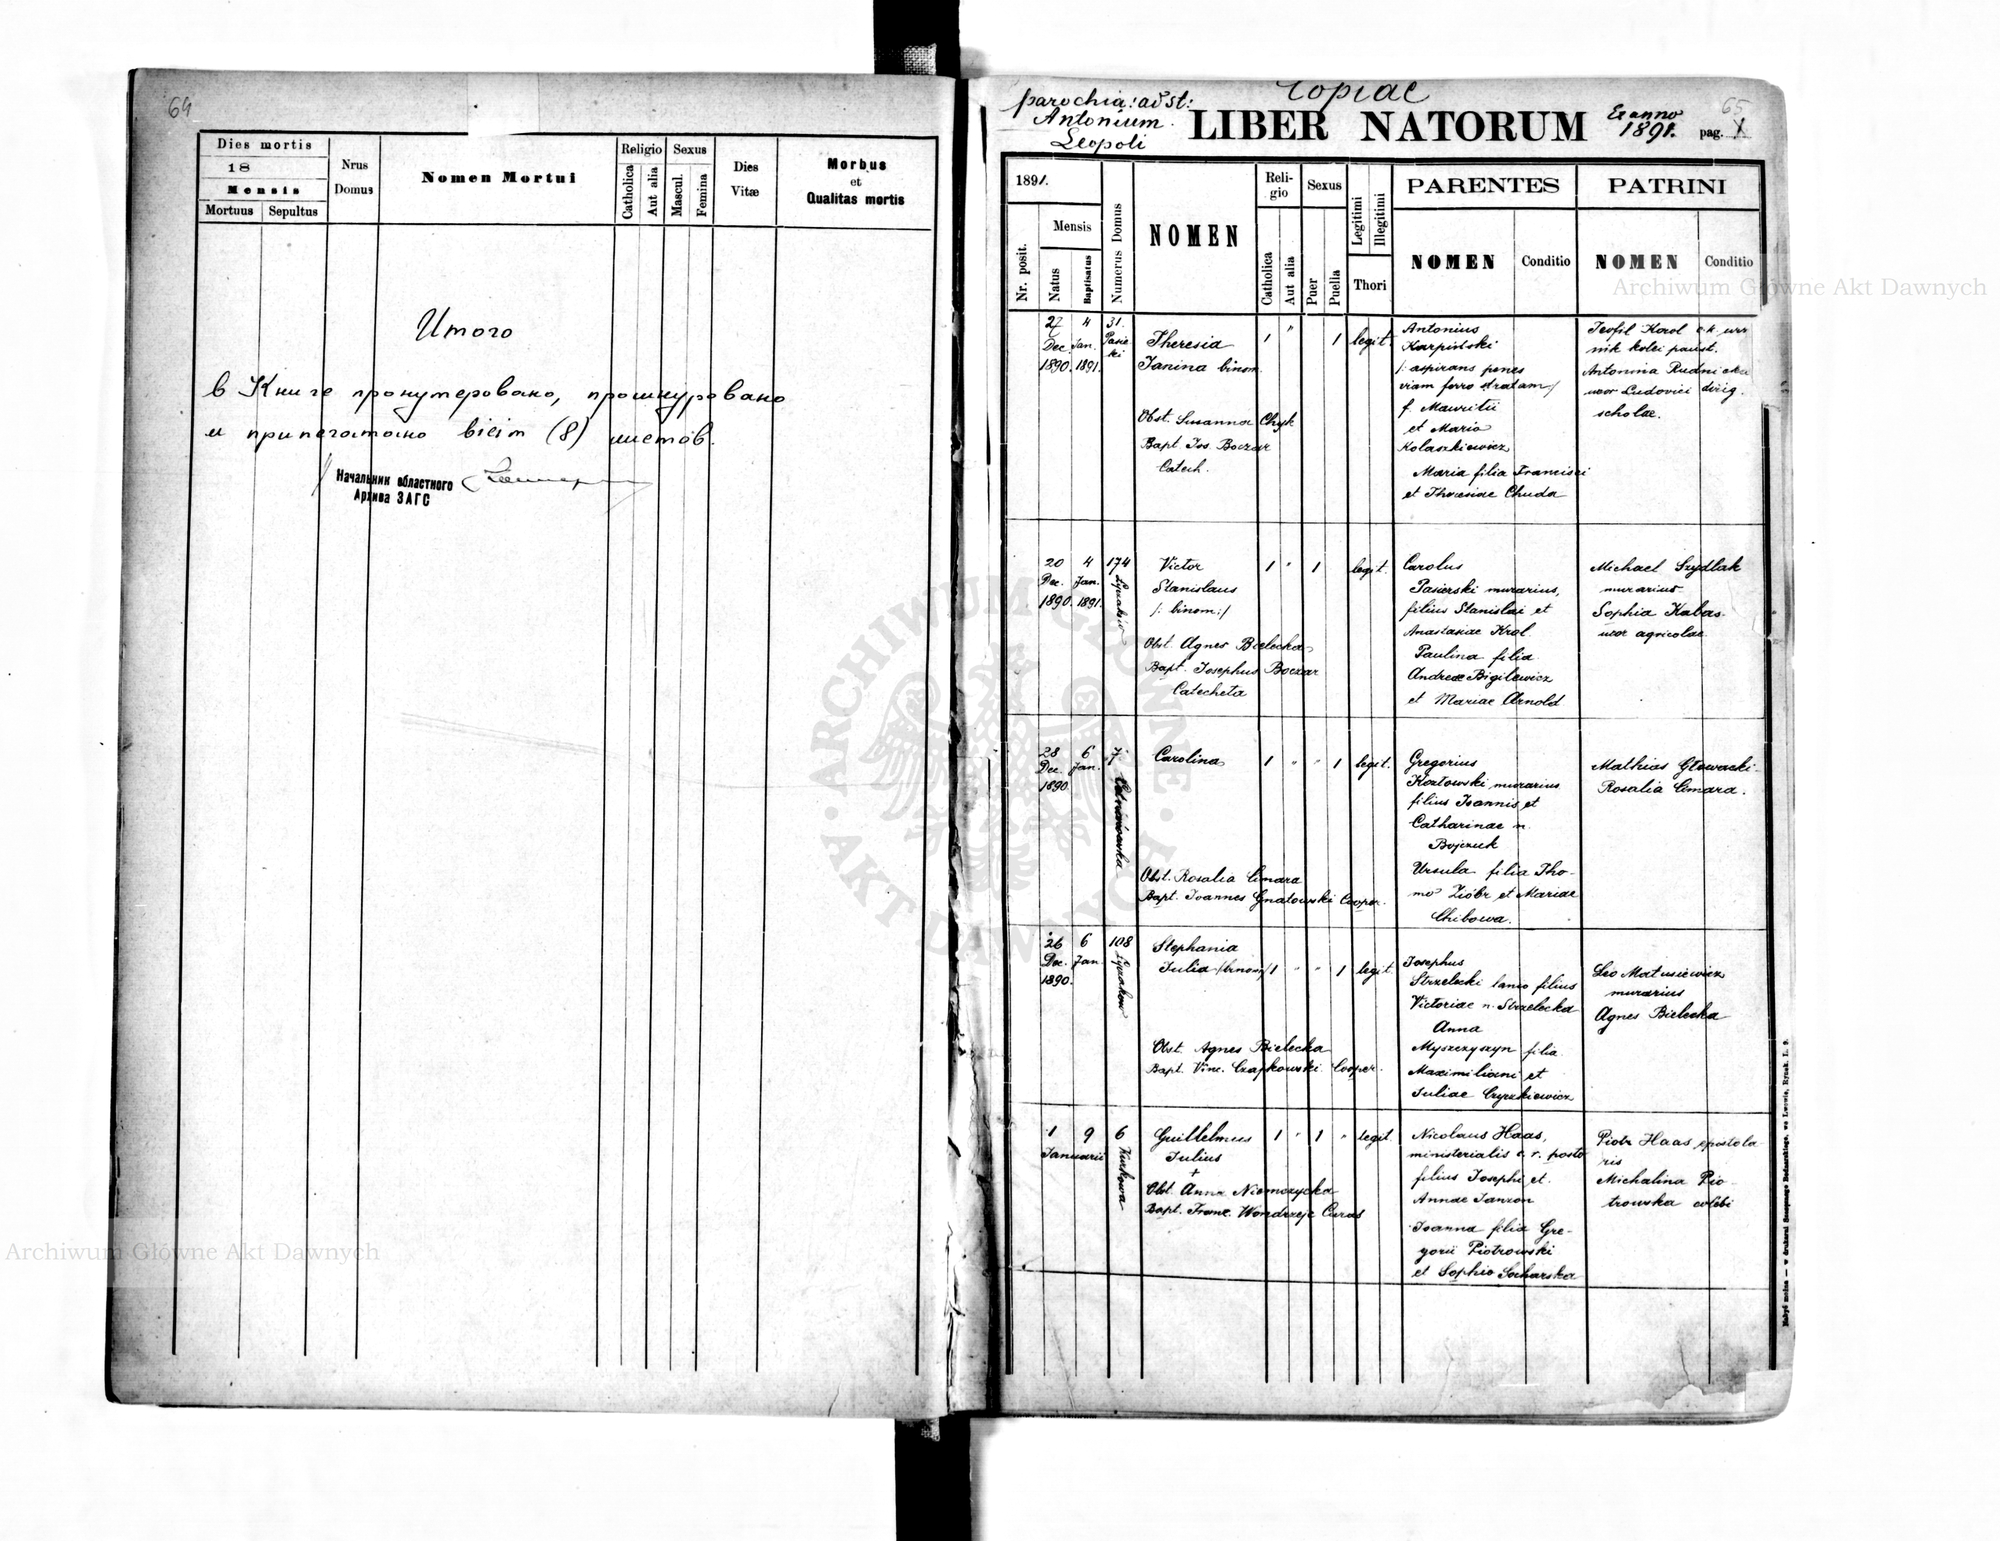 64
Dies mortis
18
Mensis
Mortuus
Sepultus
Nrus
Domus
Nomen Mortui
Religio
Catholica
Aut alia
Sexus
Mascul.
Femina
Dies
Vitæ
Morbus
et
Qualitas mortis
Итого
в Книге пронумеровано, прошнуровано
и припечатано вісім (8) листов.
Начальник областного
Архива ЗАГС
Copiae
parochia: ad st:
Antonium
Leopoli
LIBER NATORUM
Ex anno
1891.
pag. 1
65
1891.
Nr. posit.
Mensis
Natus
Baptisatus
Numerus Domus
NOMEN
Reli-
gio
Catholica
Aut alia
Sexus
Puer
Puella
Legitimi
Illegitimi
Thori
PARENTES
NOMEN
Conditio
PATRINI
NOMEN
Conditio
27 4 31.
Dec. Jan.
1890. 1891.
Theresia
Janina binom.
Obst. Susanna Chyk
Bapt. Jos. Boczar
Catech.
1 " 1 legit.
Antonius
Karpiński
/: aspirans penes
viam ferro stratam /
f. Mauritii
et Maria
Kolaszkiewicz
Maria filia Francisci
et Theresiae Chuda
Teofil Korol c.k. urz
nik kolei państ.
Antonina Rudnicka
uxor Ludovici dirig.
scholae.
20 4 174
Dec. Jan.
1890. 1891.
Victor
Stanislaus
/: binom :/
Obst. Agnes Bielecka
Bapt. Josephus Boczar
Catecheta
1 " 1 legit.
Carolus
Pasierski murarius,
filius Stanislai et
Anastasiae Krol
Paulina filia
Andreae Bigilewicz
et Mariae Arnold
Michael Szydlak
murarius
Sophia Kabas
uxor agricolae
28 6 7
Dec. Jan.
1890.
Carolina
Obst. Rosalia Cmara
Bapt. Joannes Gnatowski Cooper.
1 " " 1 legit.
Gregorius
Kozłowski murarius
filius Joannis et
Catharinae n.
Bojczuk
Ursula filia Tho-
mo Ziobr et Mariae
Chibowa.
Mathias Głowacki
Rosalia Cmara.
26 6 108
Dec. Jan.
1890.
Łyczaków
Stephania
Julia /binom/
Obst. Agnes Bielecka
Bapt. Vinc. Czapkowski Cooper.
1 " " 1 legit.
Josephus
Strzelecki lanio filius
Victoriae n. Strzelecka
Anna
Myszczyszyn filia
Maximiliani et
Juliae Czyrzkiewicz
Leo Matusiewicz
murarius
Agnes Bielecka
1 9 6
Januarii
Kurkowa
Guillelmus
Julius
+
Obst. Anna Niemczycka
Bapt. Franc. Wondrzeje Curas
1 " 1 " legit.
Nicolaus Haas,
ministerialis c. r. posto
filius Josephi et
Annae Janzon
Joanna filia Gre-
gorii Piotrowski
et Sophia Socharska
Piotr Haas epistola
ris
Michalina Pio-
trowska
Archiwum Główne Akt Dawnych
Archiwum Główne Akt Dawnych
ARCHIWUM GŁÓWNE · AKT DAWNYCH ·